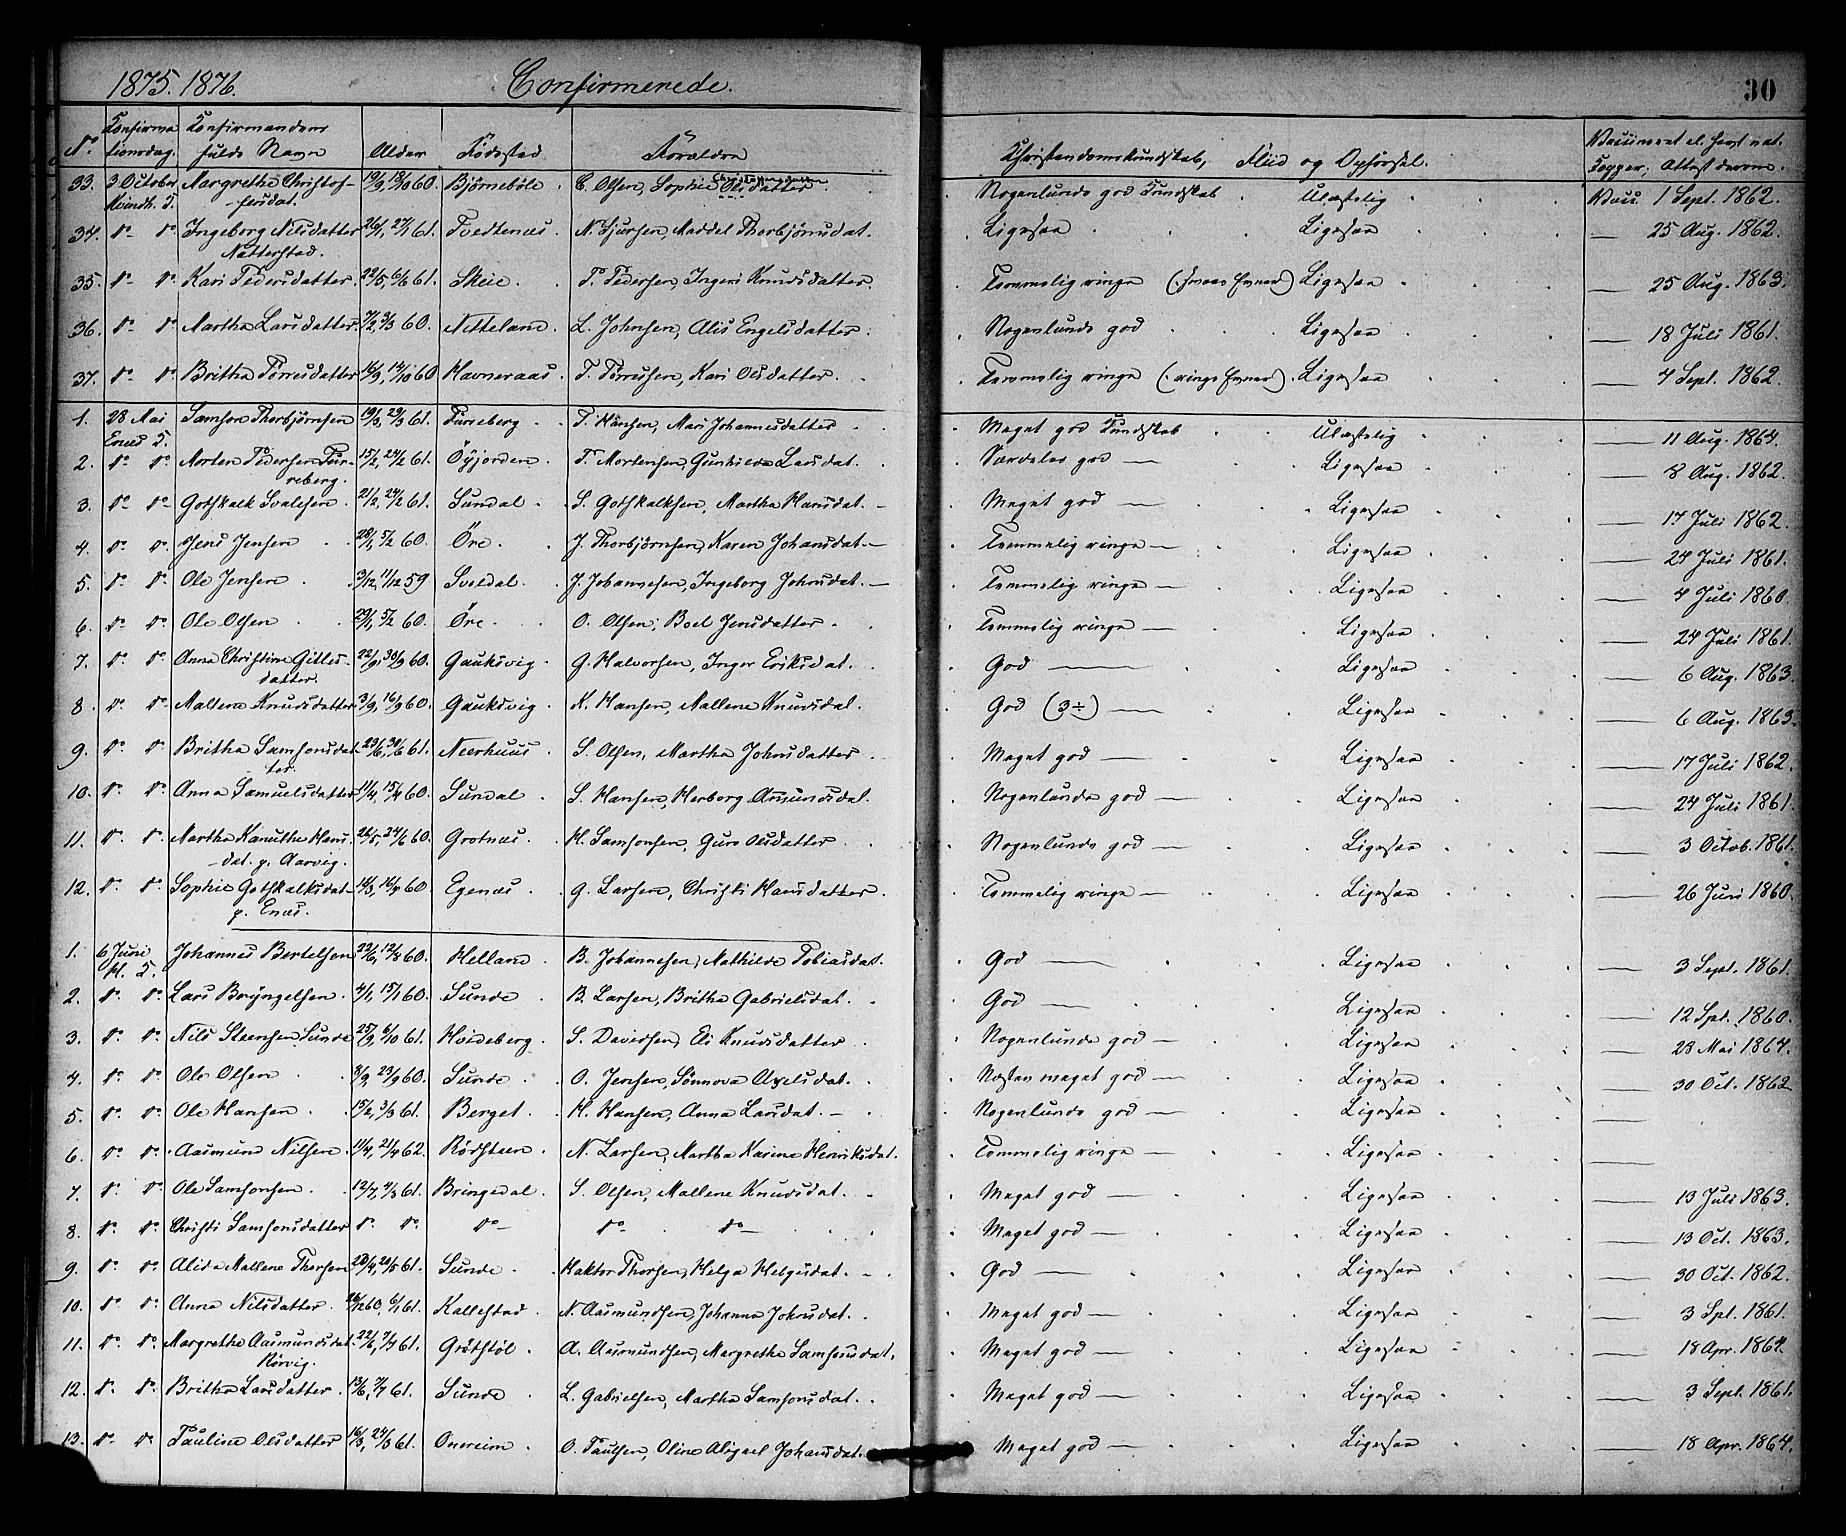 1875. 1876. Confirmerede. 30
No. Konfirmationsdag. Konfirmandens fulde Navn Alder Födested Forældre Christendomskundskab, Flid og Opförsel. Vaccineret el. havt nat. Kopper; Attest derom.
33. 3 October Qvindh. K. Margrethe Christoffersdat. 19/9, 18/10 60. Björnebôle C. Olsen, Sophie Olsdatter Nogenlunde god Kundskab Ulastelig Vacc. 1 Sept. 1862.
34. do do Ingeborg Nilsdatter Natterstad. 26/1, 27/1 61. Tvedtenæs N. Sjursen, Maddel Thorbjörnsdat. Ligesaa Ligesaa — 25 Aug. 1862.
35. do do Kari Pedersdatter 22/5, 6/6 61. Skeie P. Pedersen, Ingeri Knudsdatter Temmelig ringe (svage Evner) Ligesaa — 25 Aug. 1863.
36. do do Martha Larsdatter 7/2, 9/3 60. Netteland L. Johnsen, Alis Engelsdatter Nogenlunde god Ligesaa — 18 Juli 1861.
37. do do Britha Torresdatter 16/9, 14/10 60 Havneraas T. Torressen, Kari Olsdatter Temmelig ringe (ringe Evner) Ligesaa — 4 Sept. 1862.
1. 28 Mai Enæs K. Samson Thorbjörnsen 19/3, 29/3 61. Fureberg T. Hansen, Mari Johannesdatter Meget god Kundskab Ulastelig — 11 Aug. 1864.
2. do do Morten Pedersen Fureberg. 15/2, 24/2 61. Öyjorden P. Mortensen, Gunhilde Larsdat. Særdeles god — Ligesaa — 8 Aug. 1862.
3. do do Gotskalk Svalesen 21/2, 24/2 61. Sundal S. Gotskalksen, Martha Hansdat. Meget god — Ligesaa — 17 Juli 1862.
4. do do Jens Jensen 28/1, 5/2 60. Öre J. Thorbjörnsen, Karen Johansdat. Temmelig ringe — Ligesaa — 24 Juli 1861.
5. do do Ole Jensen 3/12, 11/12 59 Sveldal J. Johannesen, Ingeborg Johnsdat. Temmelig ringe — Ligesaa — 4 Juli 1860.
6. do do Ole Olsen 29/1, 5/2 60. Öre O. Olsen, Boel Jensdatter Temmelig ringe — Ligesaa — 24 Juli 1861.
7. do do Anna Christine Gittlesdatter. 22/9, 30/9 60. Gauksvig G. Halvorsen, Inger Eriksdat. God — Ligesaa — 6 Aug. 1863.
8. do do Maltene Knudsdatter 3/9, 16/9 60. Gauksvig K. Hansen, Mallene Knudsdat. God (3÷) — Ligesaa — 6 Aug. 1863.
9. do do Britha Samsonsdatter. 23/6, 30/6 61. Neerhuus S. Olsen, Martha Johnsdatter Meget god — Ligesaa — 17 Juli 1862.
10. do do Anna Samuelsdatter 11/4, 15/4 60. Sundal S. Hansen, Herborg Asmundsdat. Nogenlunde god — Ligesaa — 24 Juli 1861.
11. do do Martha Kanuthe Hansdat. p. Aarvig. 26/5, 24/6 60. Grotnæs H. Samsonsen, Guro Olsdatter Nogenlunde god — Ligesaa — 3 Octob. 1861.
12. do do Sophie Gotskalksdat. p. Enæs. Egenæs G. Larsen, Christi Hansdatter Temmelig ringe — Ligesaa — 26 Juni 1860.
1. 6 Juni H. K. Johannes Bertelsen 22/6, 12/8 60. Helland B. Johannesen, Mathilde Tobiasdat. God — Ligesaa — 3 Sept. 1861.
2. do do Lars Bryngelsen 4/1, 15/1 60. Sunde B. Larsen, Britha Gabrielsdat. God — Ligesaa — 12 Spt. 1860.
3. do do Nils Steensen Sunde 25/9, 6/10 61. Hvideberg S. Davidsen, Eli Knudsdatter Nogenlunde god — Ligesaa — 28 Mai 1864.
4. do do Ole Olsen 8/9, 23/9 60. Sunde O. Jensen, Sönnova Axelsdat. Næsten meget god — Ligesaa — 30 Oct. 1862
5. do do Ole Hansen 15/2, 3/3 61. Berget H. Hansen, Anna Larsdat. Nogenlunde god — Ligesaa
6. do do Aasmund Nilsen 11/4, 21/4 62. Rödsteen N. Larsen, Martha Karine Henriksdat. Temmelig ringe — Ligesaa —
7. do do Ole Samsonsen 12/7, 4/8 61. Bringedal S. Olsen, Mallene Knudsdat. Meget god — Ligesaa — 13 Juli 1863.
8. do do Christi Samsonsdatter do do do do do Meget god — Ligesaa — 13 Oct. 1863.
9. do do Alida Mallene Thorsen 28/4, 20/5 61. Sunde Haktor Thorsen, Helga Helgesdat. God — Ligesaa — 30 Oct. 1862.
10. do do Anna Nilsdatter 26/12 60, 6/1 61. Kallestad N. Aasmundsen, Johanna Johnsdat. Meget god — Ligesaa — 3 Spt. 1861.
11. do do Margrethe Aasmundsdat. Rörvig. 22/6, 7/7 61. Grötstöl A. Aasmundsen, Margrethe Samsonsdat. Meget god — Ligesaa — 18 Apr. 1864.
12. do do Britha Larsdatter 13/6, 7/7 61. Sunde L. Gabrielsen, Martha Samsonsdat. Meget god — Ligesaa — 3 Sept. 1861.
13. do do Pauline Olsdatter 16/3, 24/3 61. Omreim O. Paulsen, Oline Abigael Johansdat. Meget god — Ligesaa — 18 Apr. 1864.